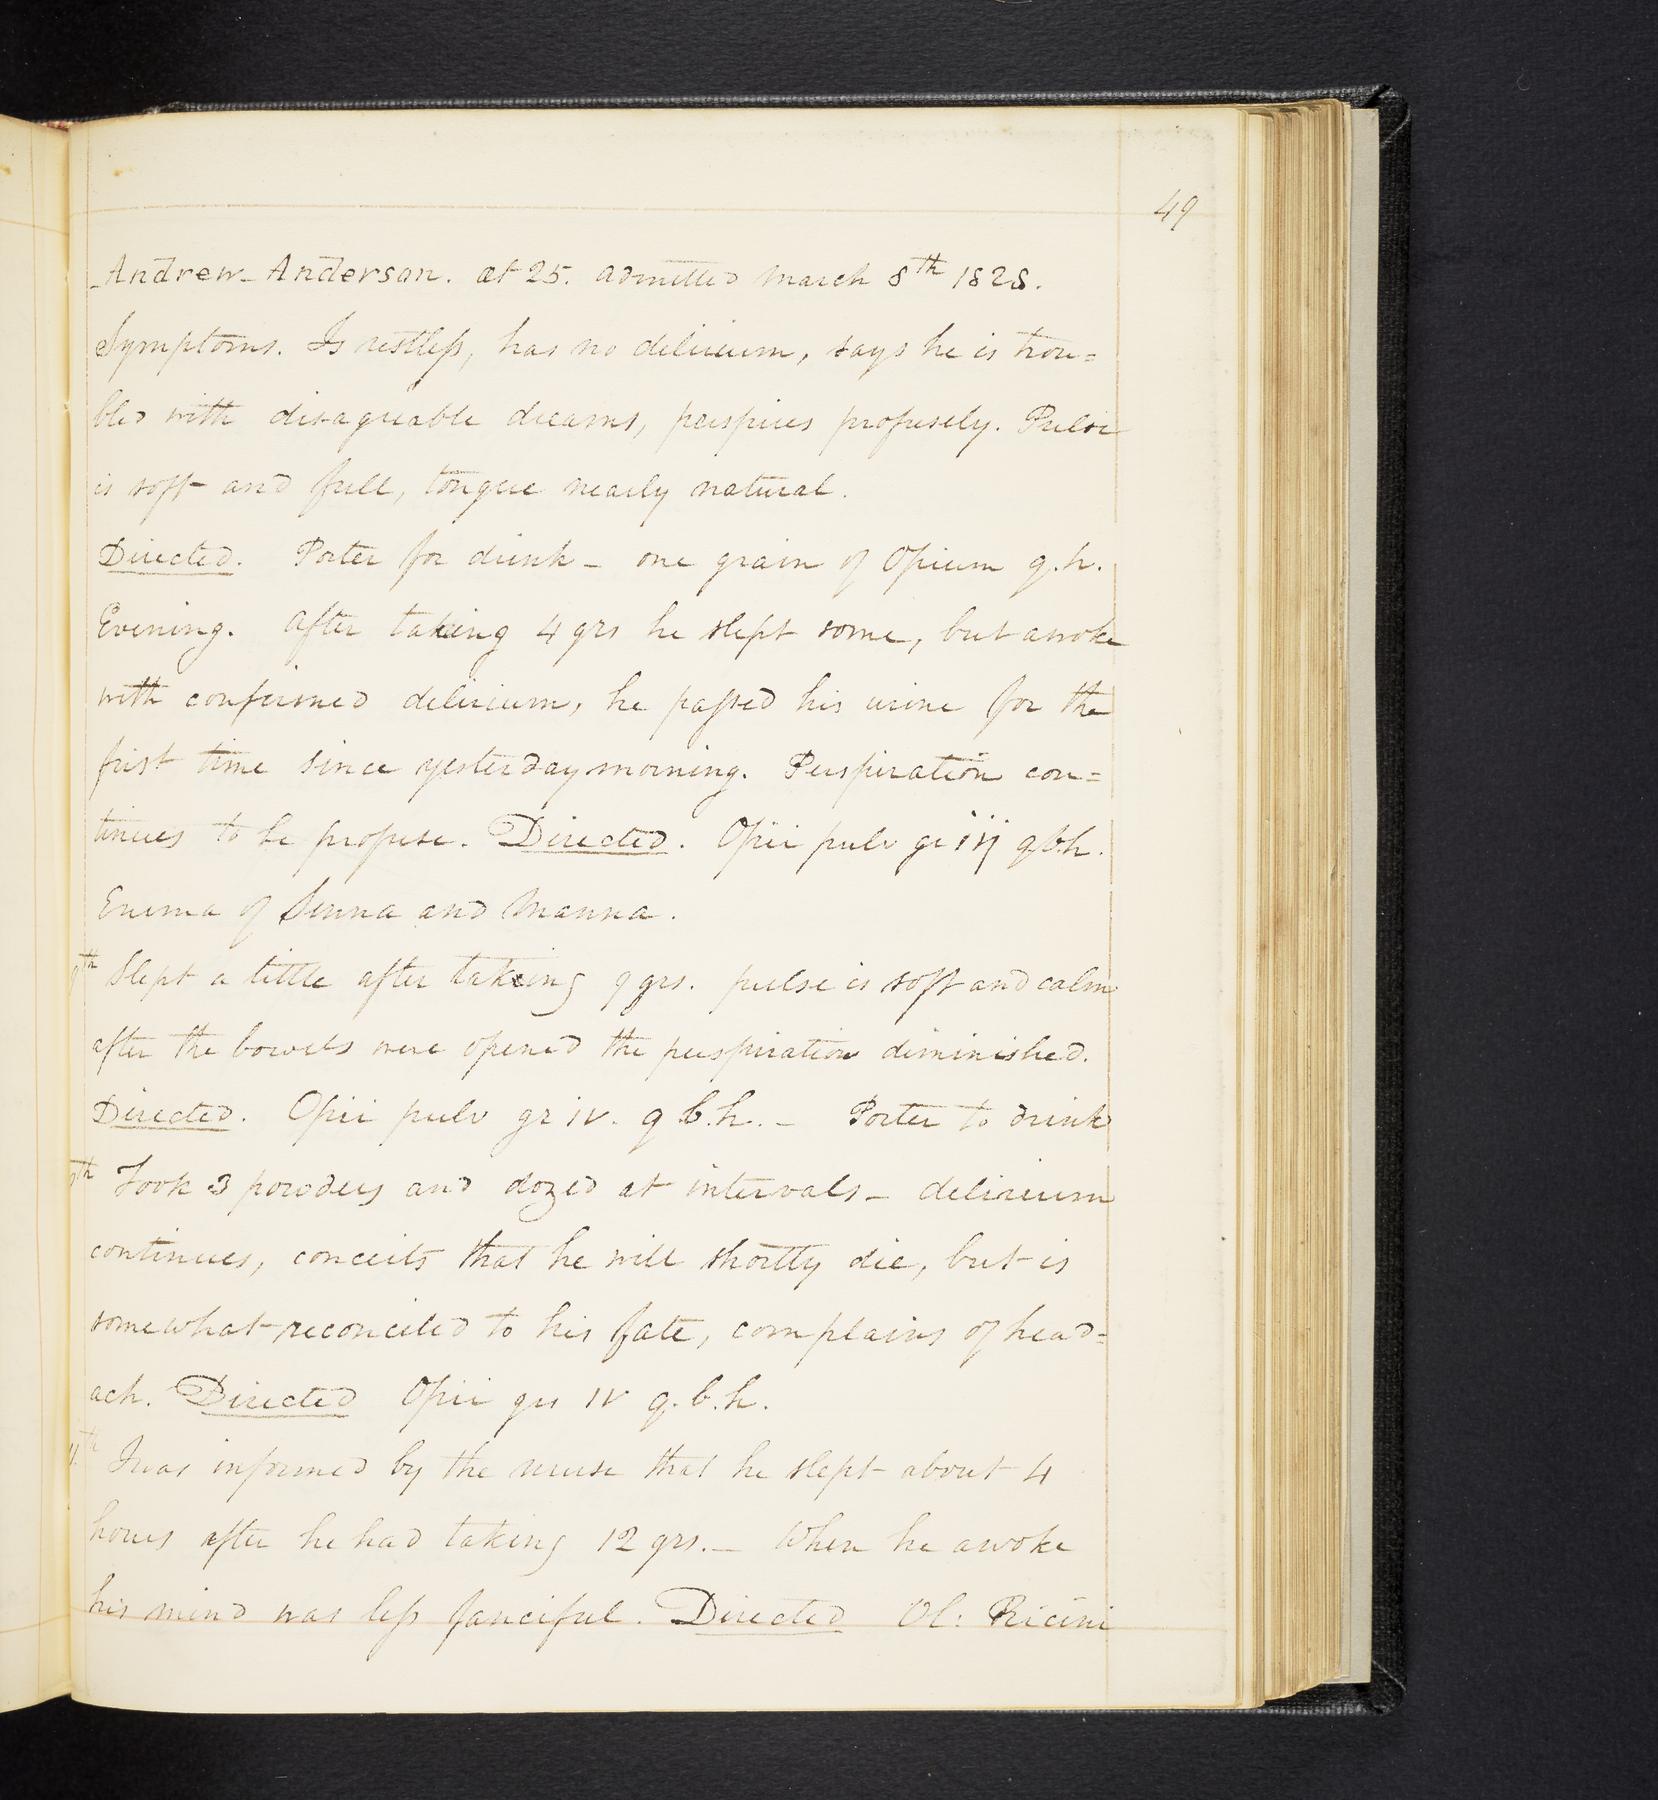 49
Andrew Anderson. æt 25. admitted March 8th 1828.
Symptoms. Is restless, has no delirium, says he is trou=
bled with disagreable dreams, perspires profusely. Pulse
is soft and full, tongue nearly natural.
Directed. Porter for drink - one grain of Opium q.h.
Evening. After taking 4 grs he slept some, but awoke
with confirmed delirium, he passed his urine for the
first time since yesterday morning. Perspiration con=
tinues to be profuse. Directed. Opii pulv gr iij q b.h.
Enema of Senna and Manna.
9th Slept a little after taking 9 grs. pulse is soft and calm
after the bowels were opened the perspiration diminished.
Directed. Opii pulv gr iv. q b.h. - Porter to drink
th Took 3 powders and dozed at intervals - delirium
continues, conceits that he will shortly die, but is
somewhat reconciled to his fate, complains of head=
ach. Directed Opii grs iv q.b.h.
11.th I was informed by the nurse that he slept about 4
hours after he had taking 12 grs. - When he awoke
his mind was less fanciful. Directed Ol: Ricini